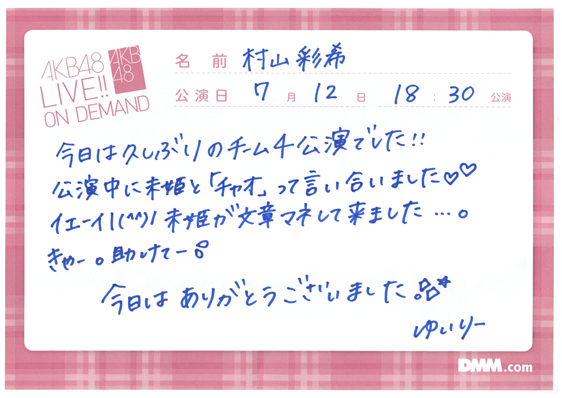 AKB48
LIVE!!
ON DEMAND
AKB
48
名前 村山彩希
公演日 7月12日 18:30公演
今日は久しぶりのチーム4公演でした!!
公演中に未姫と「チャオ」って言い合いました♡♡
イエーイ!(^^)! 未姫が文章マネして来ました…。
きゃー。助けてー
今日はありがとうございました
ゆいりー
DMM.com